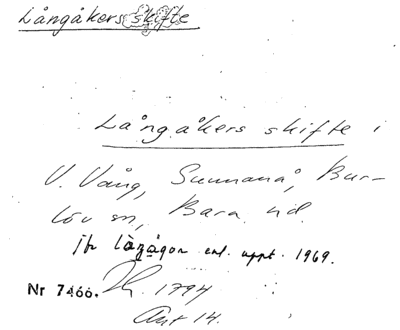 Långåkers skifte
Långåkers skifte i
V. Vång, Sunnanå, Bur-
löv sn, Bara hd.
jfr långågon enl. uppt. 1969.
Nr 7466. 1794
Akt 14.